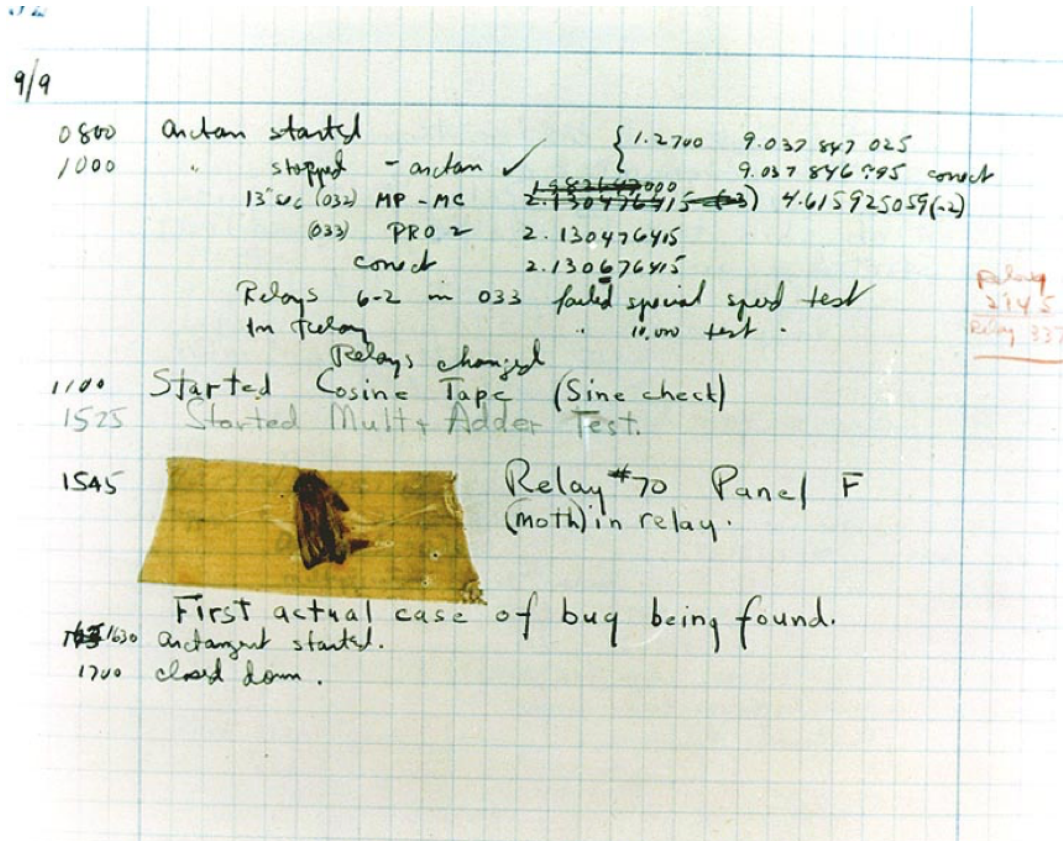 9/9
0800 arctan started { 1.2700 9.037 847 025
1000 " stopped - arctan ✓ 9.037 846 995 correct
13" sec (032) MP - MC 1.982647000 2.130476415 (-3) 4.615925059(-2)
(033) PRO 2 2.130476415
correct 2.130676415
Relays 6-2 in 033 failed special speed test
In Relay " 10.000 test .
Relays changed
1100 Started Cosine Tape (Sine check)
1525 Started Mult + Adder Test.
1545 Relay #70 Panel F
(moth) in relay.
First actual case of bug being found.
1630 arctangent started.
1700 closed down .
Relay
Relay 337